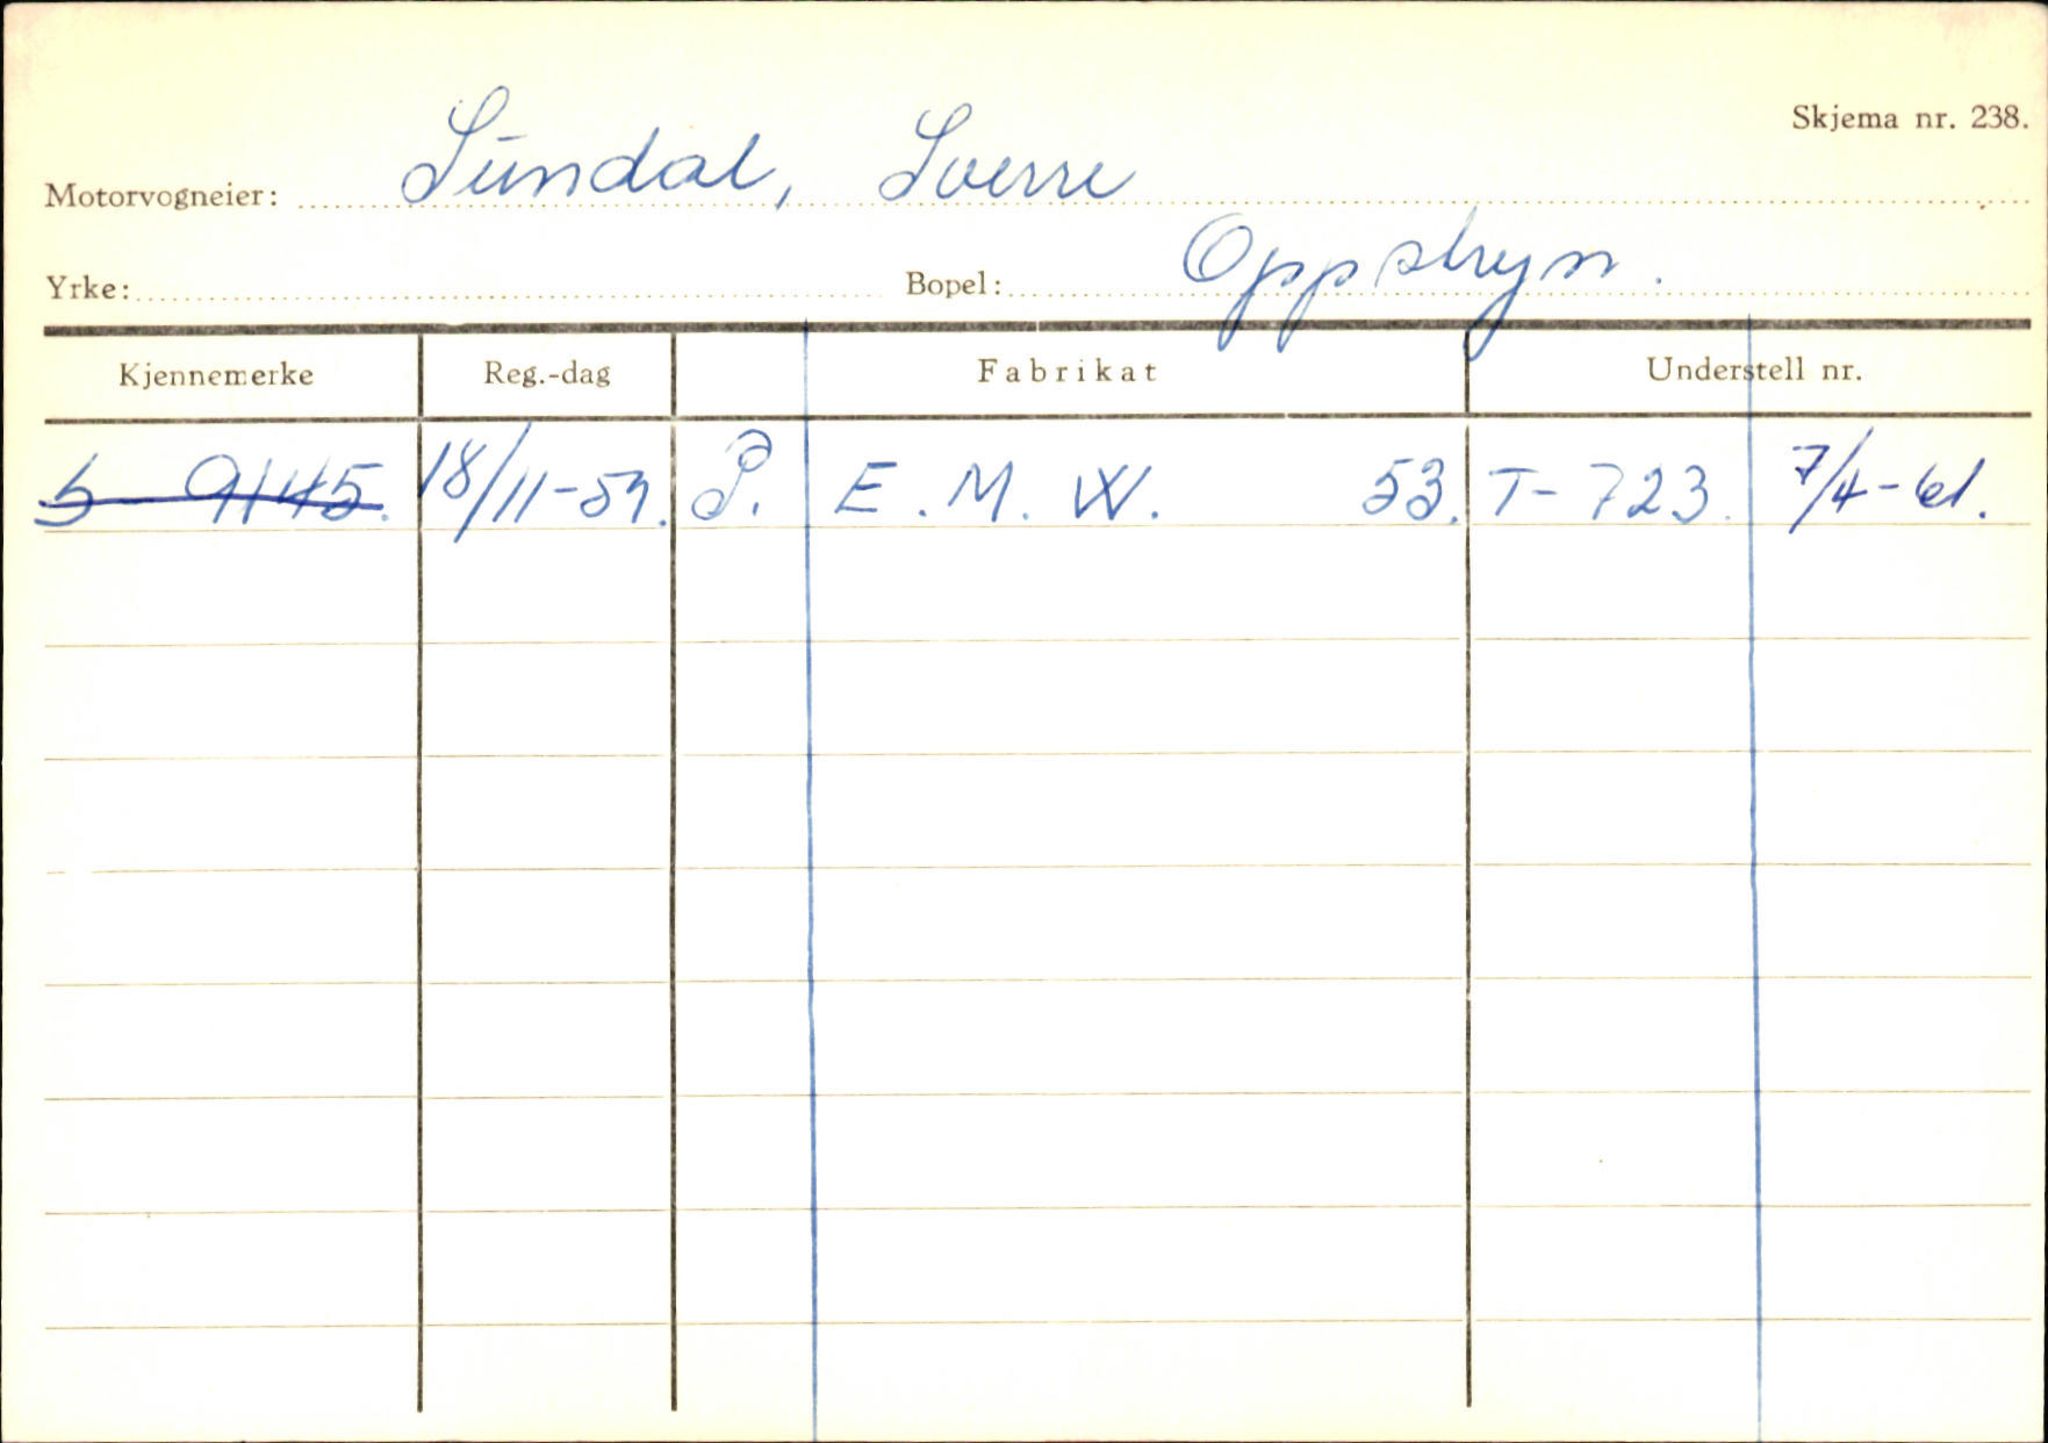 Skjema nr. 238.
Motorvogneier: Sundal, Sverre
Yrke: Bopel: Oppstryn.
Kjennemerke Reg.-dag Fabrikat Understell nr.
S 9145. 18/11-59. P. E. M. W. 53. T-723. 7/4-61.